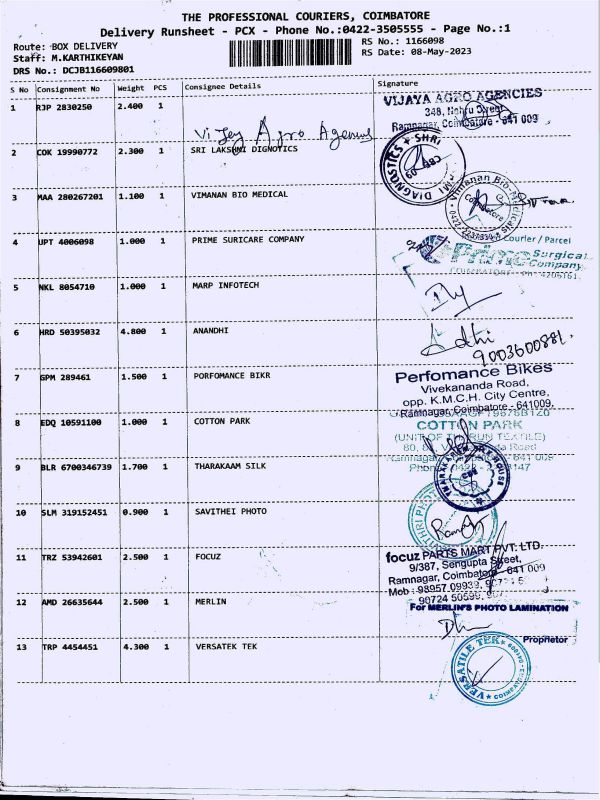 THE PROFESSIONAL COURIERS, COIMBATORE
Delivery Runsheet - PCX - Phone No.:0422-3505555 - Page No.:1
Route: BOX DELIVERY
RS No.: 1166098
Staff: M.KARTHIKEYAN
RS Date: 08-May-2023
DRS No.: DCJB116609801
S No Consignment No Weight PCS Consignee Details Signature
1 RJP 2830250 2.400 1
Vijey Agro Agencies
VIJAYA AGRO AGENCIES
348, Nehru Street
Ramnagar, Coimbatore - 641 009
2 COK 19990772 2.300 1 SRI LAKSHMI DIGNOTICS
DIAGNOSTICS * SHRI
CBE-09
3 MAA 280267201 1.100 1 VIMANAN BIO MEDICAL
Vimanan Bio-Medicals
Coimbatore
4 UPT 4006098 1.000 1 PRIME SURICARE COMPANY
Courier / Parcel
Surgical
Company
5 NKL 8054710 1.000 1 MARP INFOTECH
6 HRD 50395032 4.800 1 ANANDHI
9003600881.
7 GPM 289461 1.500 1 PORFOMANCE BIKR
Perfomance Bikes
Vivekananda Road,
opp. K.M.C.H. City Centre,
Ramnagar, Coimbatore - 641009.
8 EDQ 10591100 1.000 1 COTTON PARK
COTTON PARK
(UNIT OF TEXTILE)
9 BLR 6700346739 1.700 1 THARAKAAM SILK
10 SLM 319152451 0.900 1 SAVITHEI PHOTO
11 TRZ 53942601 2.500 1 FOCUZ
focuz PARTS MART PVT. LTD.
9/387, Sengupta Street,
Ramnagar, Coimbatore - 641 009
Mob : 98957 09939,
90724 50599,
12 AMD 26635644 2.500 1 MERLIN
For MERLIN'S PHOTO LAMINATION
Proprietor
13 TRP 4454451 4.300 1 VERSATEK TEK
VERSATILE TEK